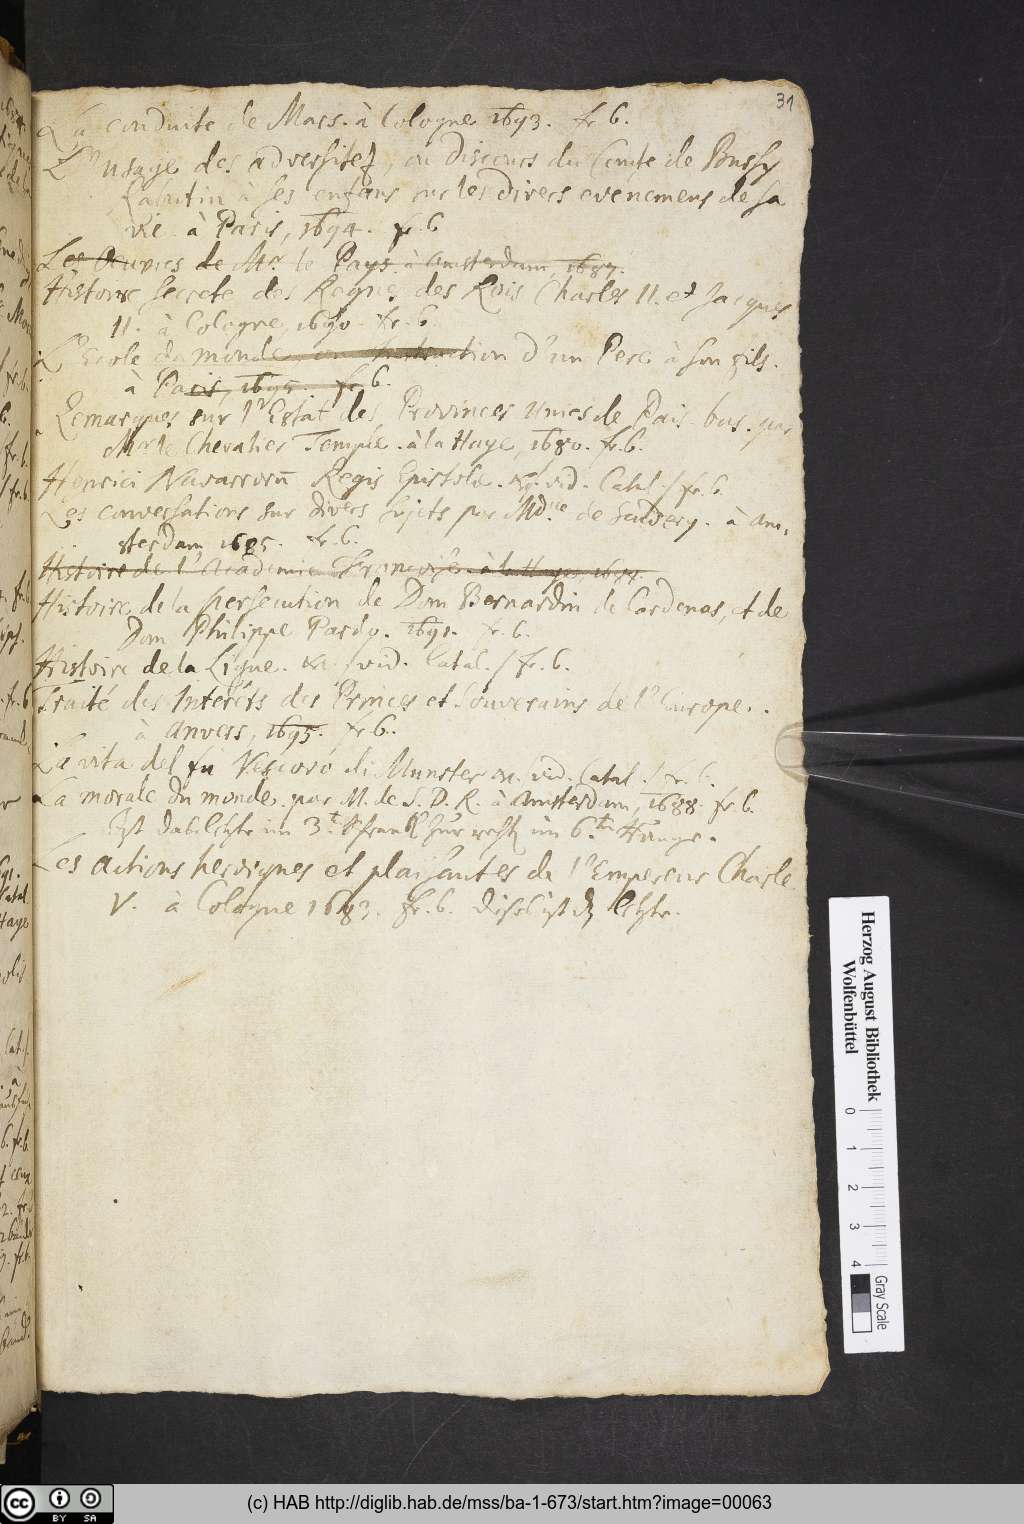 31
La conduite de Mars. à Cologne 1693. fr. 6.
L' usage des adversitez, ou Discours du Comte de Bussy
Rabutin à ses enfans sur les divers evenemens de sa
vie. à Paris, 1694. fr. 6
Les Œuvres de Mr. le Pays. à Amsterdam, 1687.
Histoire secrete des Regnes des Rois Charles II. et Jacques
II. à Cologne, 1690. fr. 6.
L'Ecole du monde ou Instruction d'un Pere à son fils.
à Paris, 1695. fr. 6.
Remarques sur l'Estat des Provinces Unies de Païs bas. par
Mr. le Chevalier Temple. à la Haye, 1680. fr. 6.
Henrici Navarrorũ Regis Epistolæ. vid. Catal. / fr. 6.
Les conversations sur divers sujets par Mdlle de Scudery. à Am,
sterdam 1685. fr. 6.
Histoire de l'Academie Françoise. à la Haye, 1688.
Histoire de la persecution de Dom Bernardin de Cardenas, et de
Dom Philippe Pardo. 1691. fr. 6.
Histoire de la Ligue. vid. Catal. / fr. 6.
Traité des Interêts des Princes et Souverains de l'Europe.
à Anvers, 1695. fr. 6.
La vita del fu Vescovo di Munster vid. Catal. / fr. 6.
La morale du monde. par M. de S. D. R. à Amsterdam, 1688. fr. 6.
ist das letzte im 3.t zur im 6.
Les actions heroiques et plaisantes de l'Empereur Charle
V. à Cologne 1683. fr. 6. dieses ist dz letzte.
Herzog August Bibliothek
Wolfenbüttel
0 1 2 3 4
Gray Scale
cc BY SA
(c) HAB http://diglib.hab.de/mss/ba-1-673/start.htm?image=00063